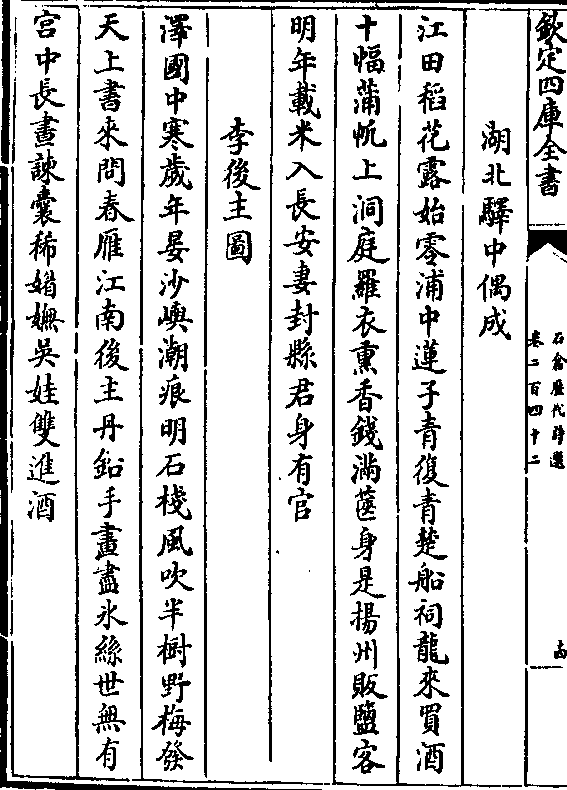 欽定四庫全書
石倉歷代詩選
卷二百四十二
湖北驛中偶成
江田稻花露始零浦中蓮子青復青楚船祠龍來買酒
十幅蒲帆上洞庭羅衣熏香錢滿篋身是揚州販鹽客
明年載米入長安妻封縣君身有官
李後主圖
澤國中寒歲年晏沙嶼潮痕明石棧風吹半樹野梅發
天上書來問春雁江南後主丹鉛手畫盡冰絲世無有
宮中長晝諫囊稀媌嫵吳娃雙進酒